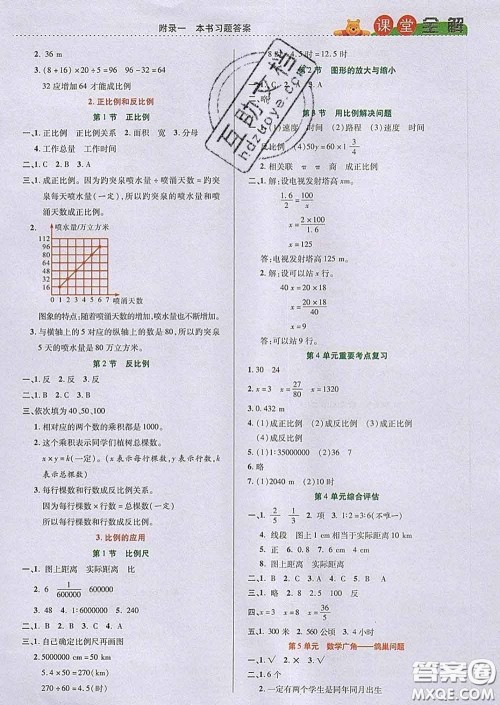 附录一 本书习题答案
课堂全解
2. 36 m
3. (8+16)×20÷5=96 96-32=64
32应增加64才能成比例
2.正比例和反比例
第1节 正比例
一、1. 正比例 正比例关系 2. 面积 宽 3. 分母
4. 工作总量 工作时间
二、1. C 2. B 3. A
三、1. 成正比例。因为趵突泉喷水量÷喷涌天数=趵突
泉每天喷水量(一定),所以趵突泉的喷水量和喷
涌天数成正比例。
2. 喷水量/万立方米
112
96
80
64
48
32
16
0 1 2 3 4 5 6 7
喷涌天数
图象的特点:随着喷涌天数的增加,喷水量也不断增加。
3. 与横轴上的5对应的纵轴上的数是80,所以趵突
泉5天的喷水量是80万立方米。
第2节 反比例
一、1. 反 2. 正 3. 反
二、1. B 2. A
三、依次填40 30 24 20
1. 相对应的两个数的乘积都是1200。
2. 这个乘积表示同学们植树总棵数。
x×y=k(一定)。(x表示每行棵数,y表示行数,k表
示总棵数)
3. 每行棵数和行数成反比例关系。
因为每行棵数×行数=总棵数(一定),
所以每行棵数和行数成反比例。
3.比例的应用
第1节 比例尺
一、1. 图上距离 实际距离 比
2. 6 1/600000 600000
二、1. B 2. B 3. C
三、1. 自己确定比例尺再画图。
2. 5000000 cm=50 km
5.4×50=270(km)
270÷60=4.5(时)
8时+4.5时=12.5时
第2节 图形的放大与缩小
第3节 用比例解决问题
(1)速度 时间 (2)路程 (3)速度 时间
反比例 (4)50y=60×1 3/4
2. 相关联 商 商 成正比例
二、1. 解:设电视发射塔高x m。
1.6/2=x/100
x=2×100/1.6
x=125
答:电视发射塔高125 m。
2. 解:设可以站x行。
40x=20×18
x=20×18/40
x=9
答:可以站9行。
第4单元重要考点复习
1. 30 24
2. x=3 x=27/80 x=1.3
3. 0.432 m
4. (1)成正比例 (2)成反比例 (3)成正比例
5. (1)1:35000000 (2)36 7
6. 略
7. (1)2040 m (2)10行
第4单元综合评估
一、1. 2/5 1/3 2. 略 3. 1:2=3:6(不唯一)
4. 线段 图上1 cm相当于实际距离100 m
5. 正 6. 0.8 7. 反 8. 1:4
二、1. × 2. × 3. √ 4. √ 5. ×
三、1. C 2. A 3. B 4. B 5. A
四、x=3 x=8 x=36/5
五、1. 300米 2. 560公顷 3. 50天
第5单元 数学广角——鸽巢问题
一、1. 6个
2. 一定有两个学生是同年同月出生
互助文档
hdzuoye.com
答案圈
MXQE.COM